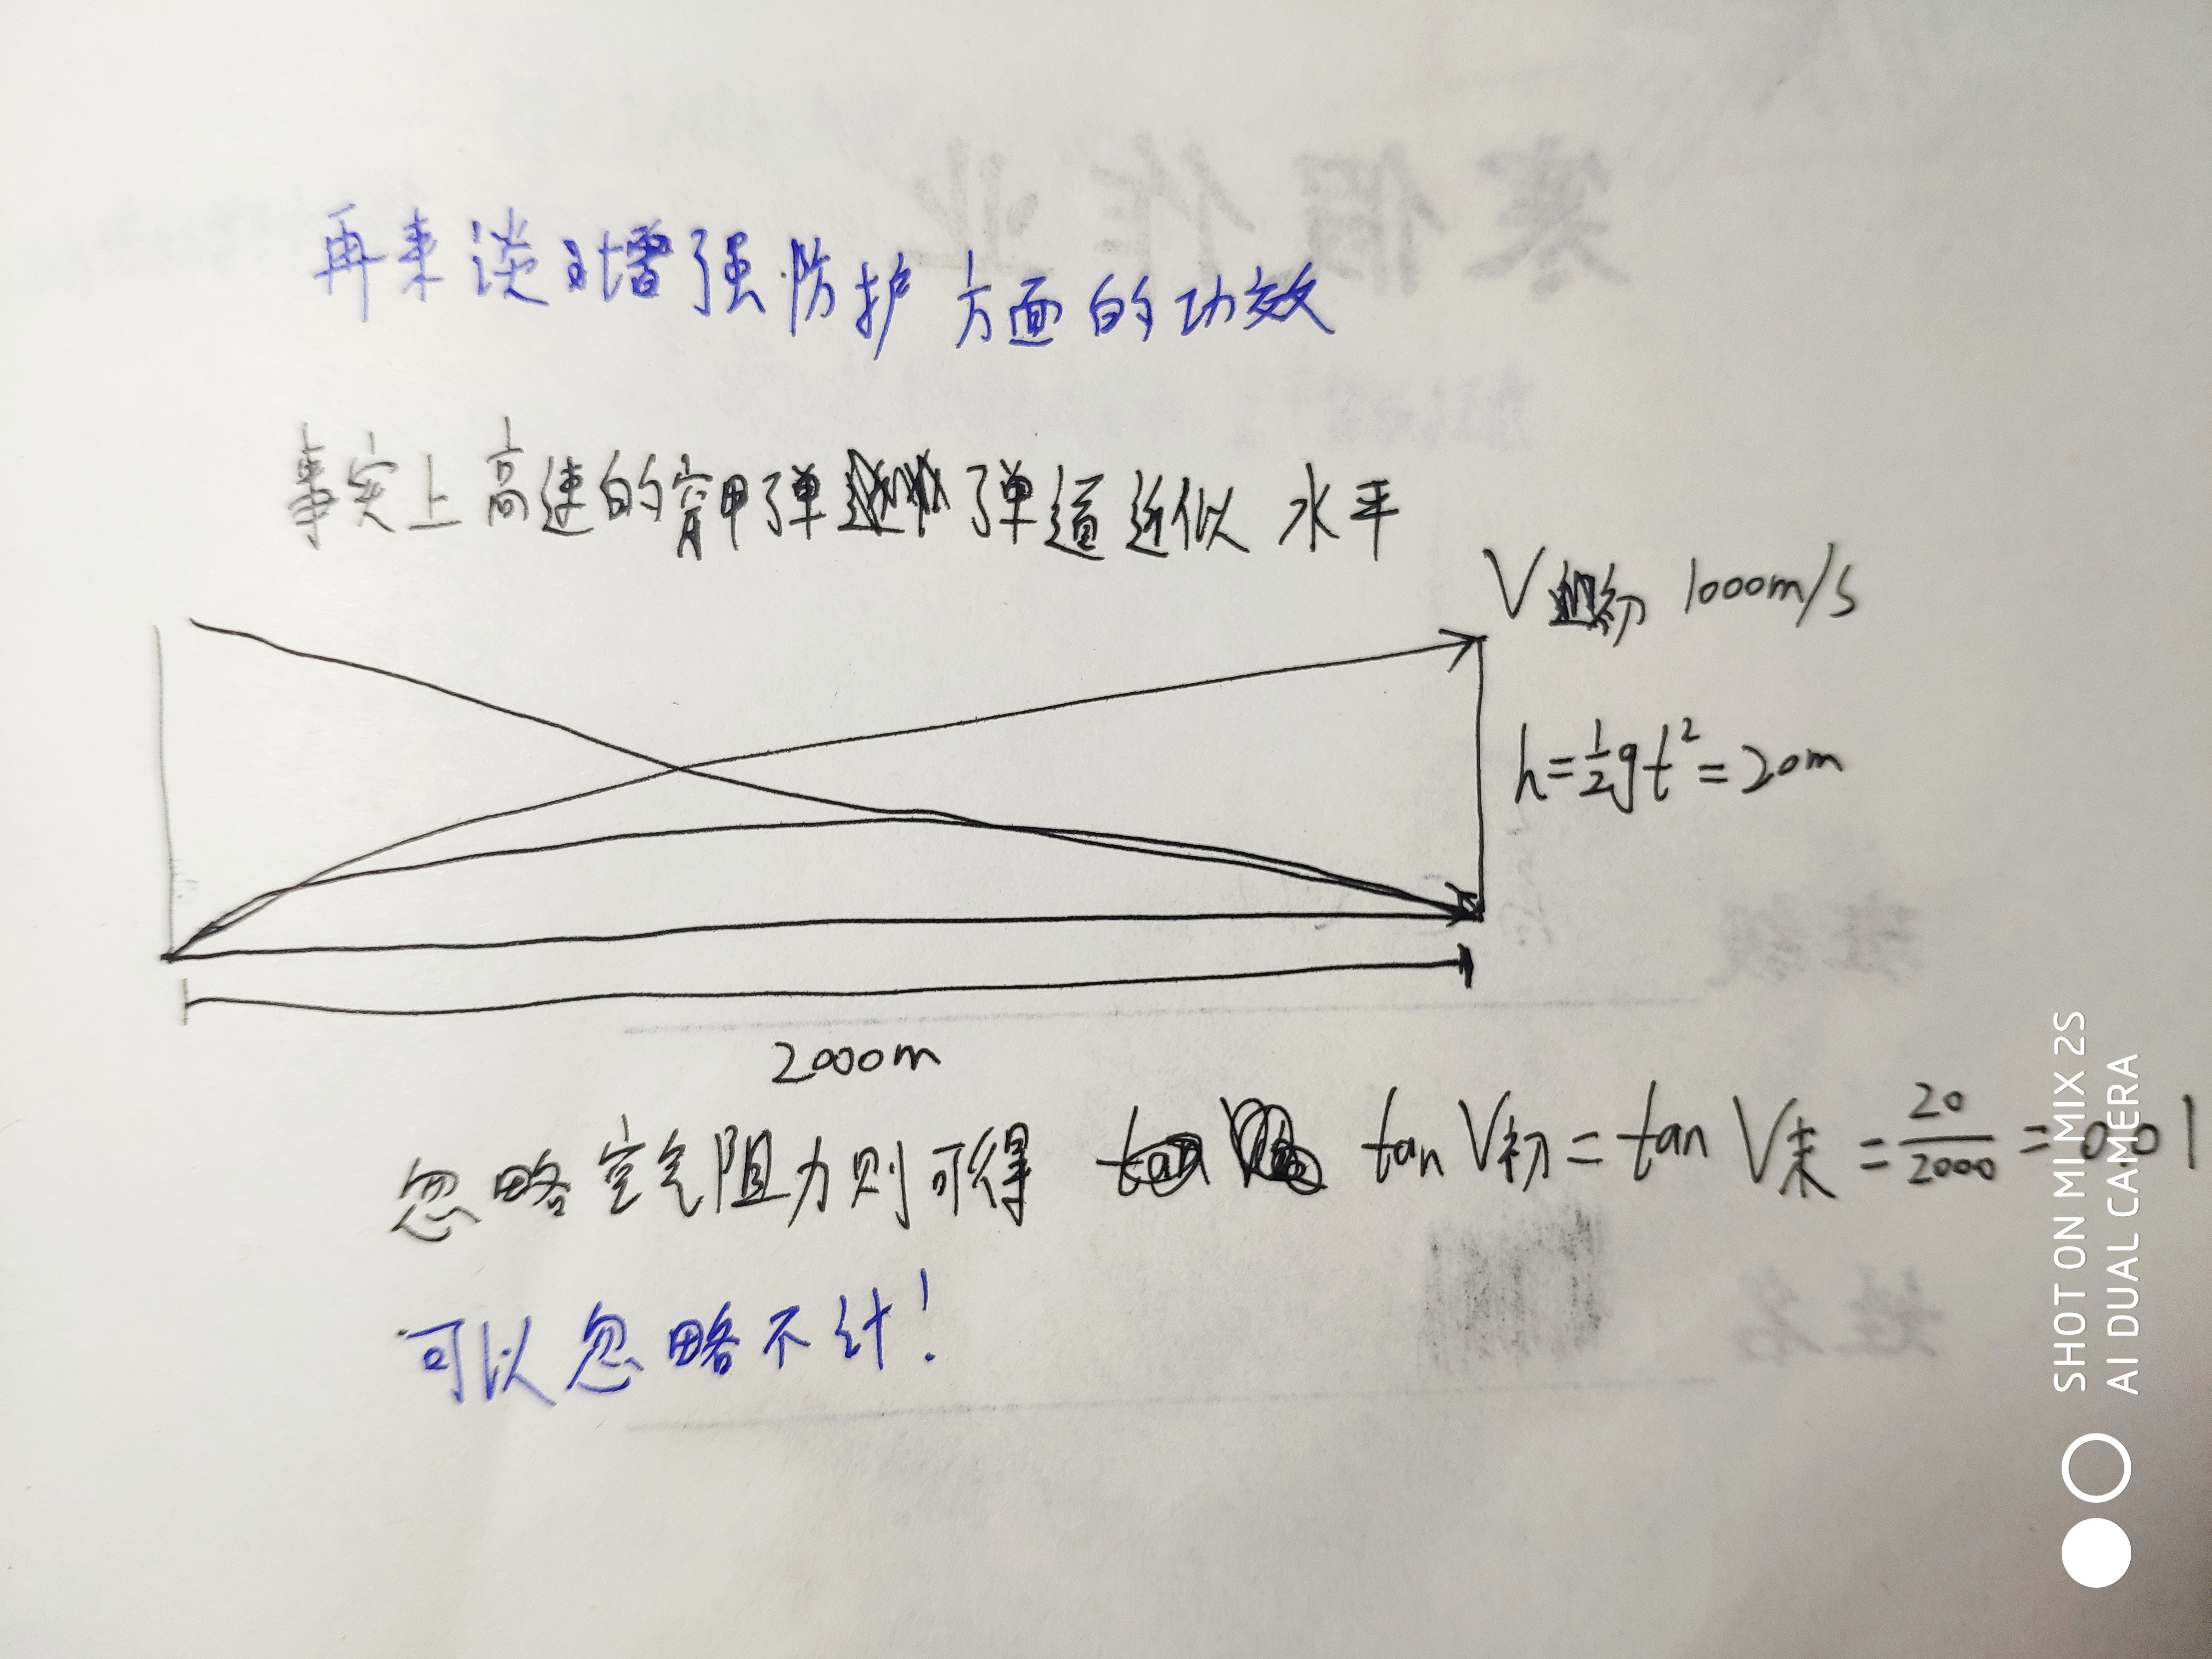 再来谈对增强防护方面的功效
事实上高速的穿甲弹 弹道近似水平
V初 1000m/s
h=½gt²=20m
2000m
忽略空气阻力则可得 tan V初 = tan V末 = 20/2000 = 0.01
可以忽略不计!
寒假作业
班级
姓名
SHOT ON MI MIX 2S
AI DUAL CAMERA